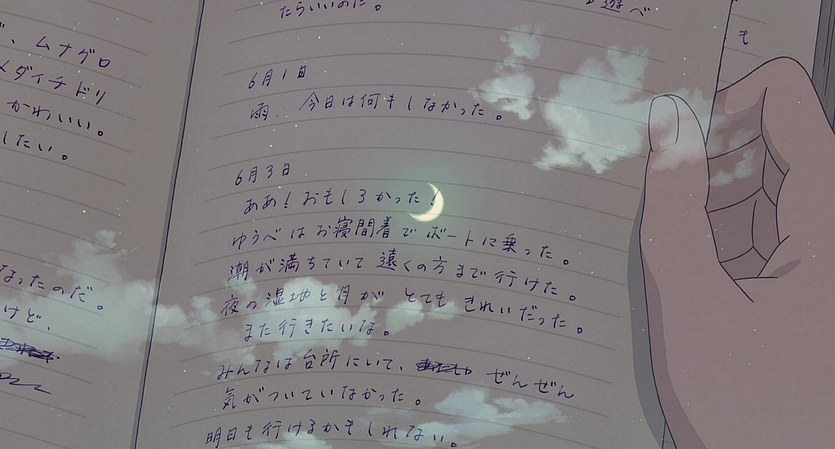 、ムナグロ
メダイチドリ
かわいい。
したい。
なったのだ。
けど、
たらいいのだ。
6月1日
雨、今日は何もしなかった。
6月3日
ああ!おもしろかった!
ゆうべはお寝間着でボートに乗った。
潮が満ちていて遠くの方まで行けた。
夜の湿地と月がとてもきれいだった。
また行きたいな。
みんなは台所にいて、ぜんぜん
気がついていなかった。
明日も行けるかもしれない。
べ
も